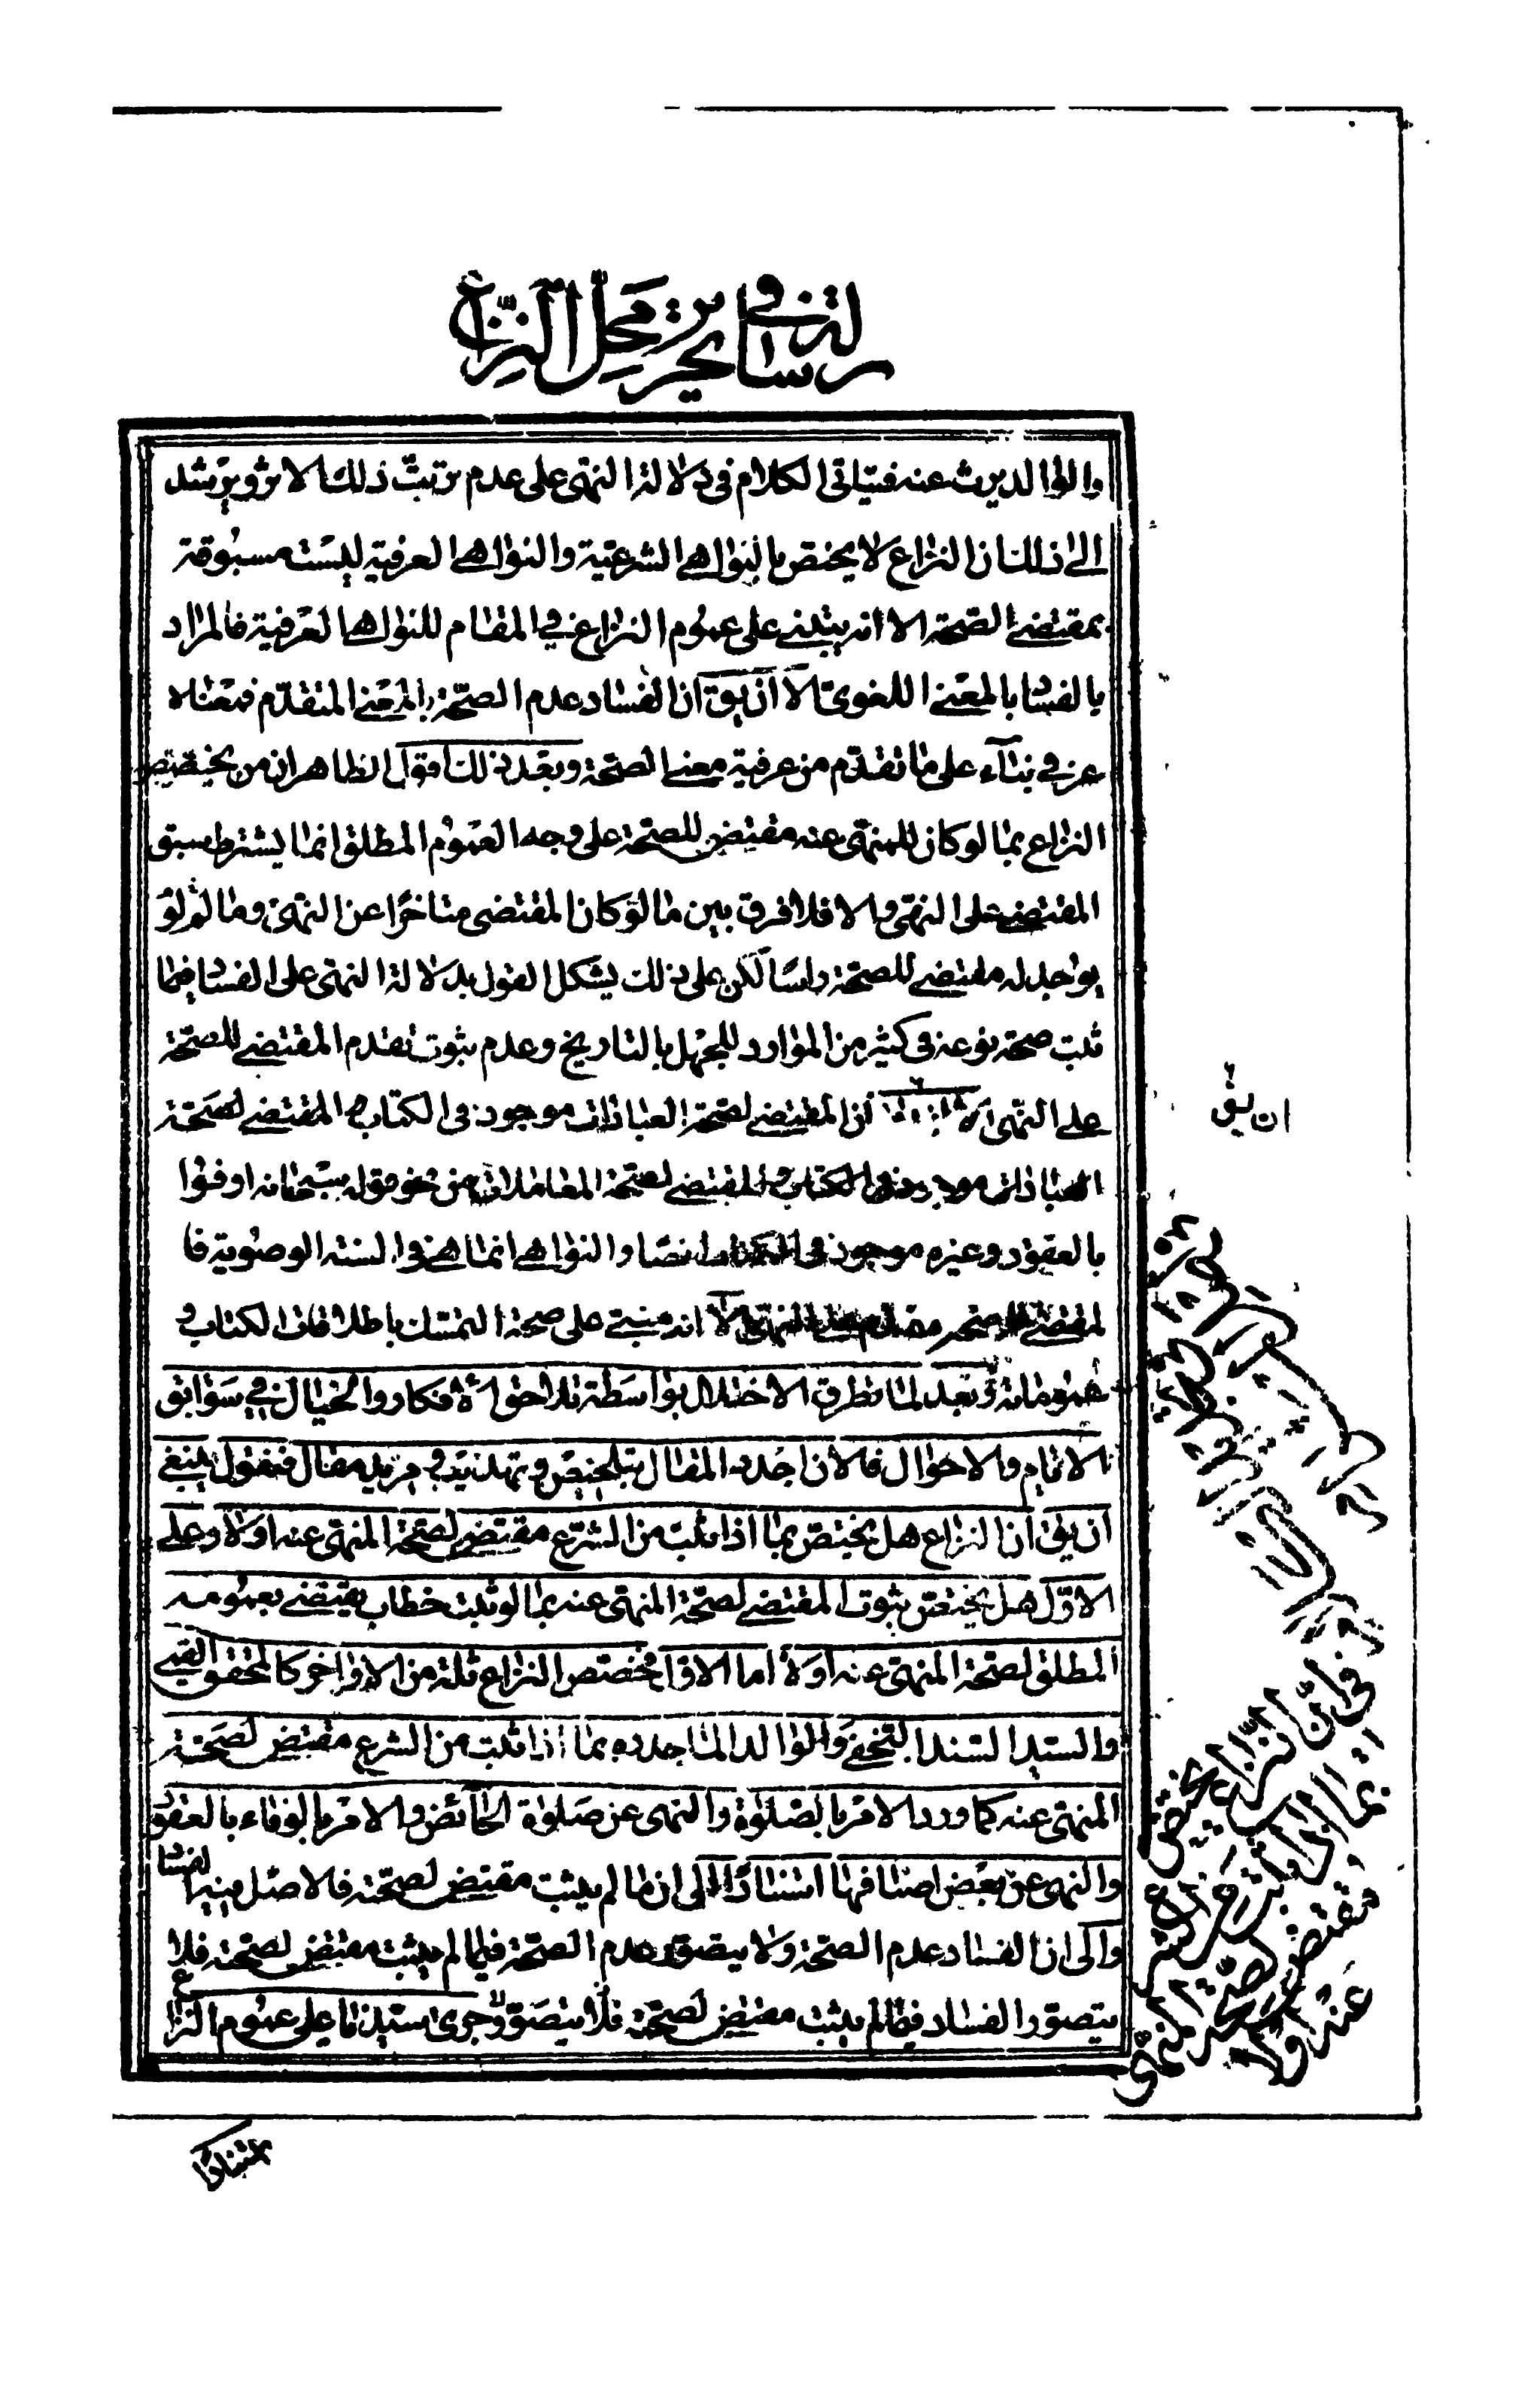 رسالة في تحرير محل النزاع
والوالد يرث عنه فيتاتى الكلام فى دلالة النهى على عدم ترتب ذلك الاثر ويرشد
الى ذلك ان النزاع لا يختص بالنواهى الشرعية والنواهى العرفية ليست مسبوقة
بمقتضى الصحة الا انه يبتنى على عموم النزاع في المقام للنواهى العرفية فالمراد
بالفساد بالمعنى اللغوى الا ان يق ان الفساد عدم الصحة بالمعنى المتقدم فمعناه
عرفى بناء على ما تقدم من عرفية معنى الصحة وبعد ذلك اقول الظاهر ان من يخصص
النزاع بما لو كان للمنهى عنه مقتض للصحة على وجه العموم المطلق انما يشترط سبق
المقتضى على النهى والا فلا فرق بين ما لو كان المقتضى متاخرا عن النهى وما لو لم
يوجد له مقتضى للصحة راسا لكن على ذلك يشكل القول بدلالة النهى على الفساد فيما
ثبت صحة نوعه فى كثير من الموارد للجهل بالتاريخ وعدم ثبوت تقدم المقتضى للصحة
على النهى الا ان المقتضى لصحة العبادات موجود فى الكتاب المقتضى لصحة
العبادات موجود فى الكتاب والمقتضى لصحة المعاملات من نحو قوله سبحانه اوفوا
بالعقود وغيره موجود فى الكتاب ايضا والنواهى انما هى فى السنة الوصوية فا
لمقتضى للصحة مقدم على النهى الا انه مبنى على صحة التمسك باطلاقات الكتاب و
عموماته وبعد لما تطرق الاختلال بواسطة تلاحق الافكار والخيال في سوابق
الايام والاحوال فالان اجدد المقال بتلخيص وتهذيب في مزيد مقال فنقول ينبغى
ان يق ان النزاع هل يختص بما اذا ثبت من الشرع مقتض لصحة المنهى عنه اولا وعلى
الاول هل يختص ثبوت المقتضى لصحة المنهى عنه بما لو ثبت خطاب يقتضى بعمومه
المطلق لصحة المنهى عنه اولا اما الاول فخصص النزاع ثلة من الاواخر كالمحقق القمى
والسيد السند النجفى والوالد الماجد ره بما اذا ثبت من الشرع مقتض لصحة
المنهى عنه كما ورد الامر بالصلوة والنهى عن صلوة الحائض والامر بالوفاء بالعقود
والنهى عن بعض اصنافها استنادا الى ان ما لم يثبت مقتض لصحته فالاصل فيه الفساد
والى ان الفساد عدم الصحة ولا يتصور عدم الصحة فيما لم يثبت مقتض لصحته فلا
يتصور الفساد فيما لم يثبت مقتض لصحته فلا يتصور وجرى سيدنا على عموم النزاع
ان يق
فى ان النزاع يختص
بما اذا ثبت من الشرع
مقتض لصحة المنهى
عنه اولا
استنادا